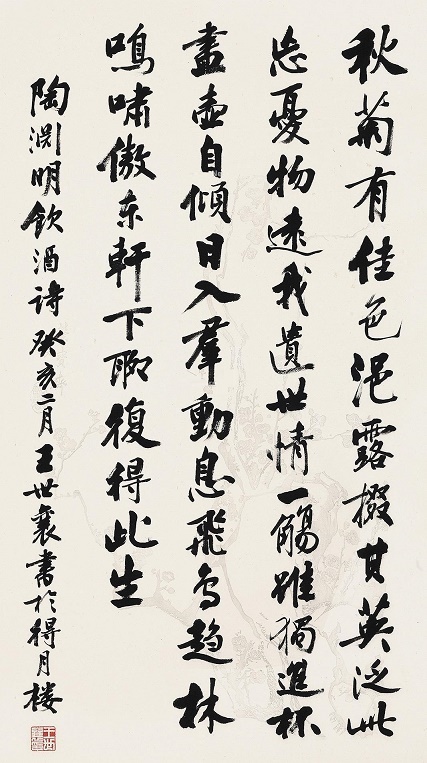 秋菊有佳色浥露掇其英泛此
忘憂物遠我遺世情一觴雖獨進杯
盡壺自傾日入羣動息飛鳥趨林
鳴嘯傲東軒下聊復得此生
陶淵明飲酒詩癸亥二月王世襄書於得月楼